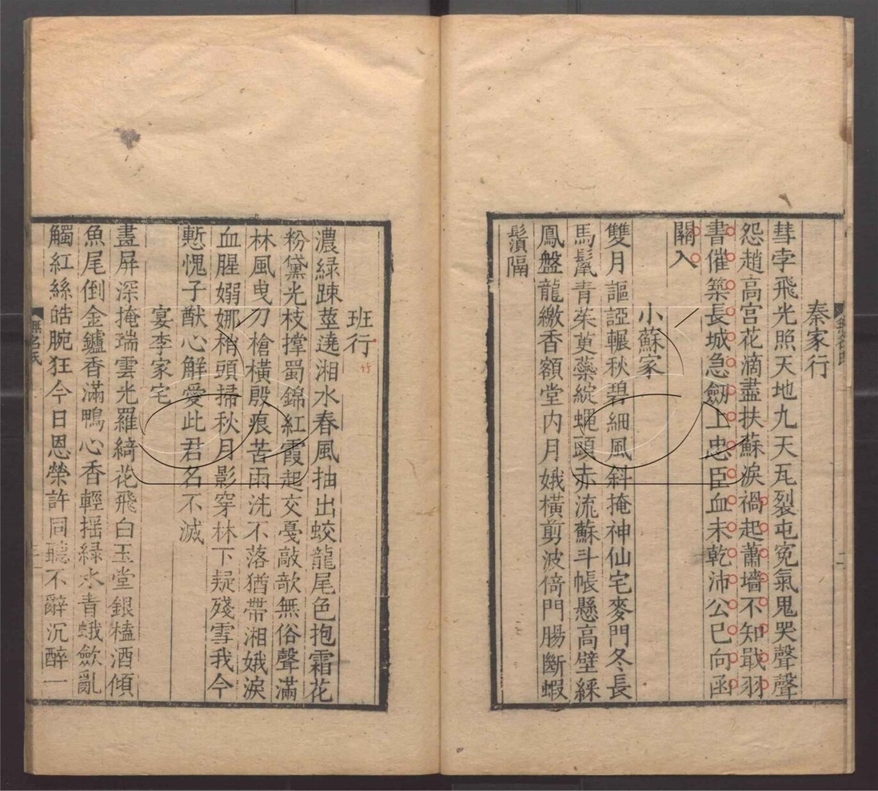 秦家行
彗孛飛光照天地九天瓦裂屯寃氣鬼哭聲聲
怨趙高宫花滴盡扶蘇淚禍起蕭墻不知戢羽
書催築長城急劒上忠臣血未乾沛公已向函
關入
小蘇家
雙月謳𧦧輾秋碧細風斜掩神仙宅麥門冬長
馬鬣青茱萸蘂綻蠅頭赤流蘇斗帳懸高壁綵
鳳盤龍繳香額堂内月娥橫剪波倚門腸斷蝦
鬚隔
班行
竹
濃綠踈莖遶湘水春風抽出蛟龍尾色抱霜花
粉黛光枝撑蜀錦紅霞起交戛敲欹無俗聲滿
林風曳刀槍橫殷痕苦雨洗不落猶帶湘娥淚
血腥嫋娜梢頭掃秋月影穿林下疑殘雪我今
慙愧子猷心解愛此君名不滅
宴李家宅
畫屏深掩瑞雲光羅綺花飛白玉堂銀榼酒傾
魚尾倒金鑪香滿鴨心香輕揺緑水青蛾歛亂
觸紅絲皓腕狂今日恩榮許同聽不辭沉醉一
無名氏